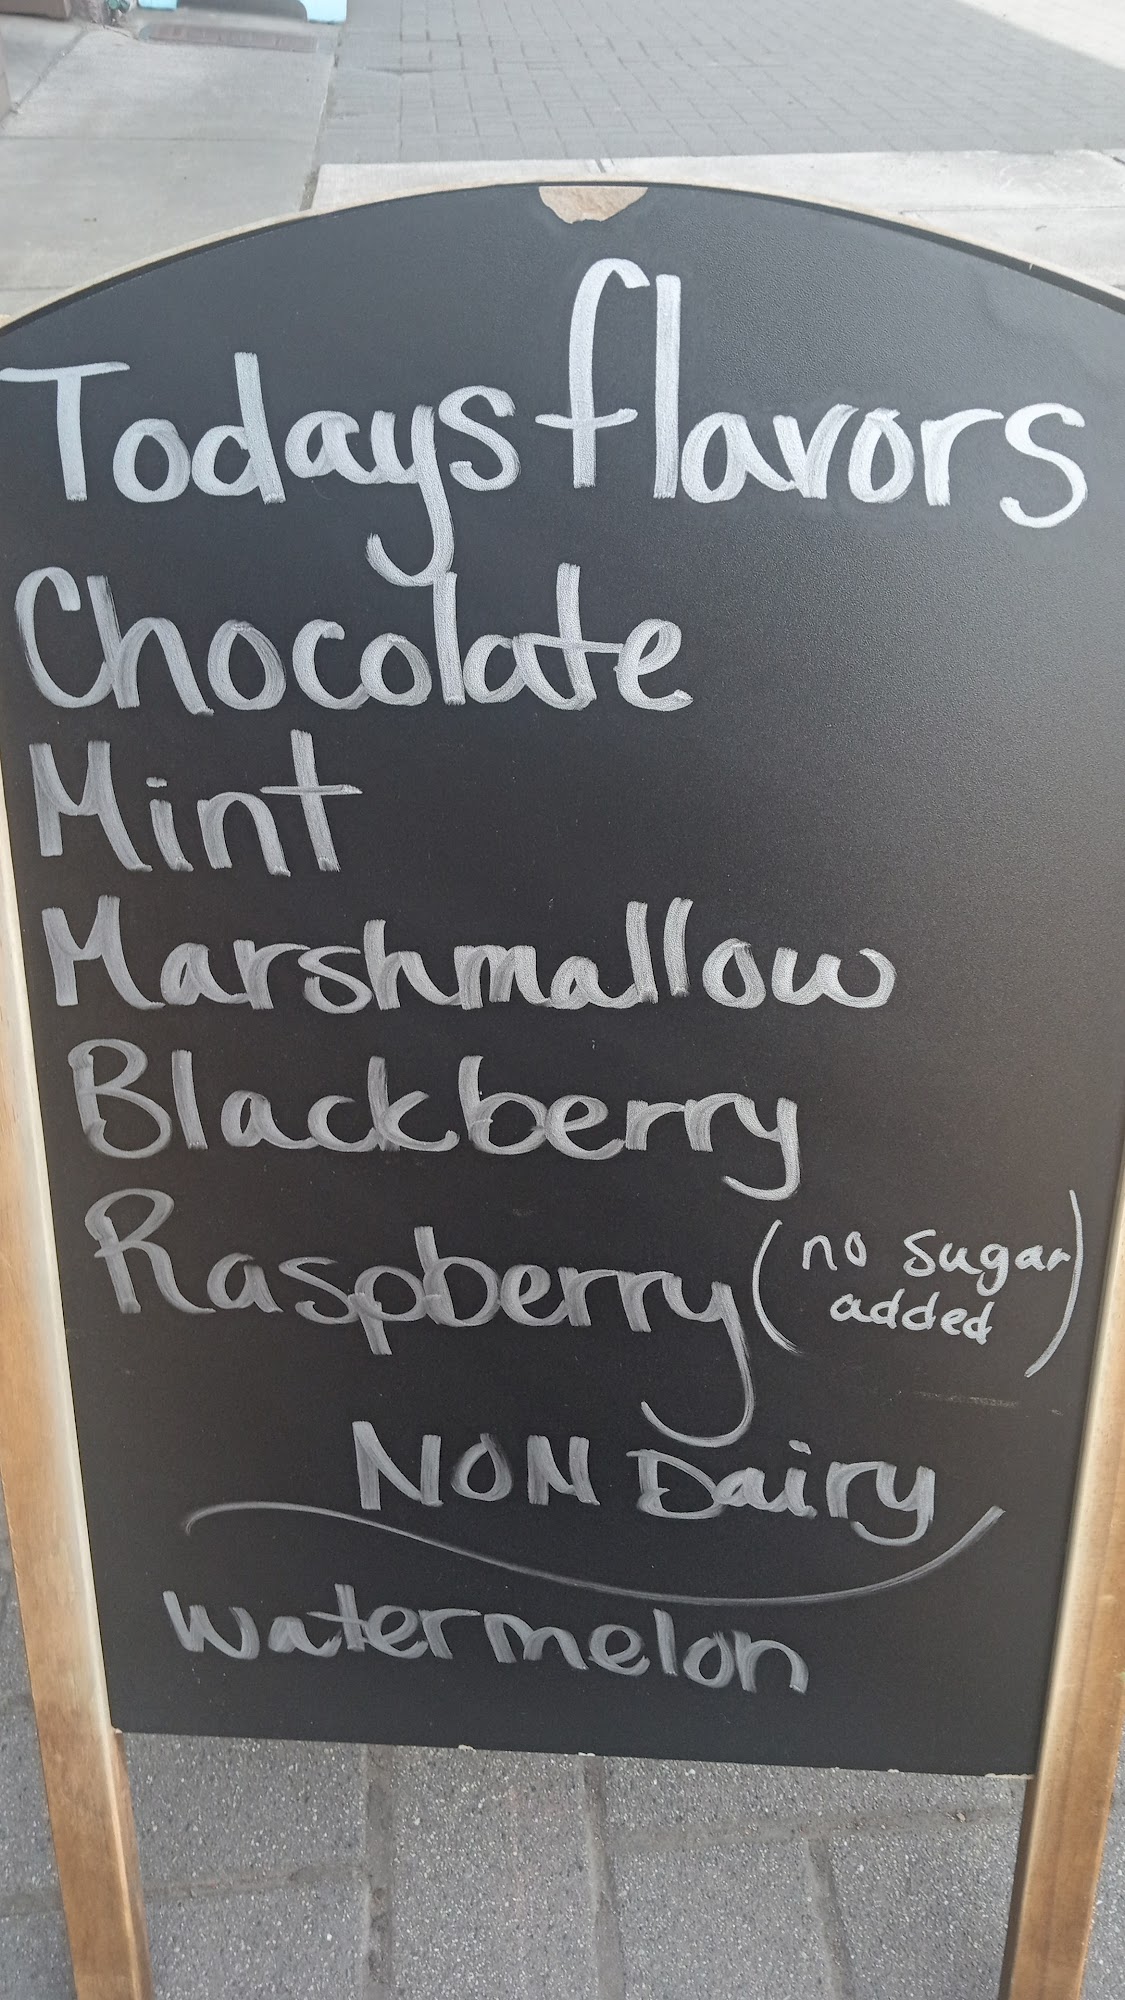 Todays flavors
Chocolate
Mint
Marshmallow
Blackberry
Raspberry (no sugar
added)
NON Dairy
Watermelon